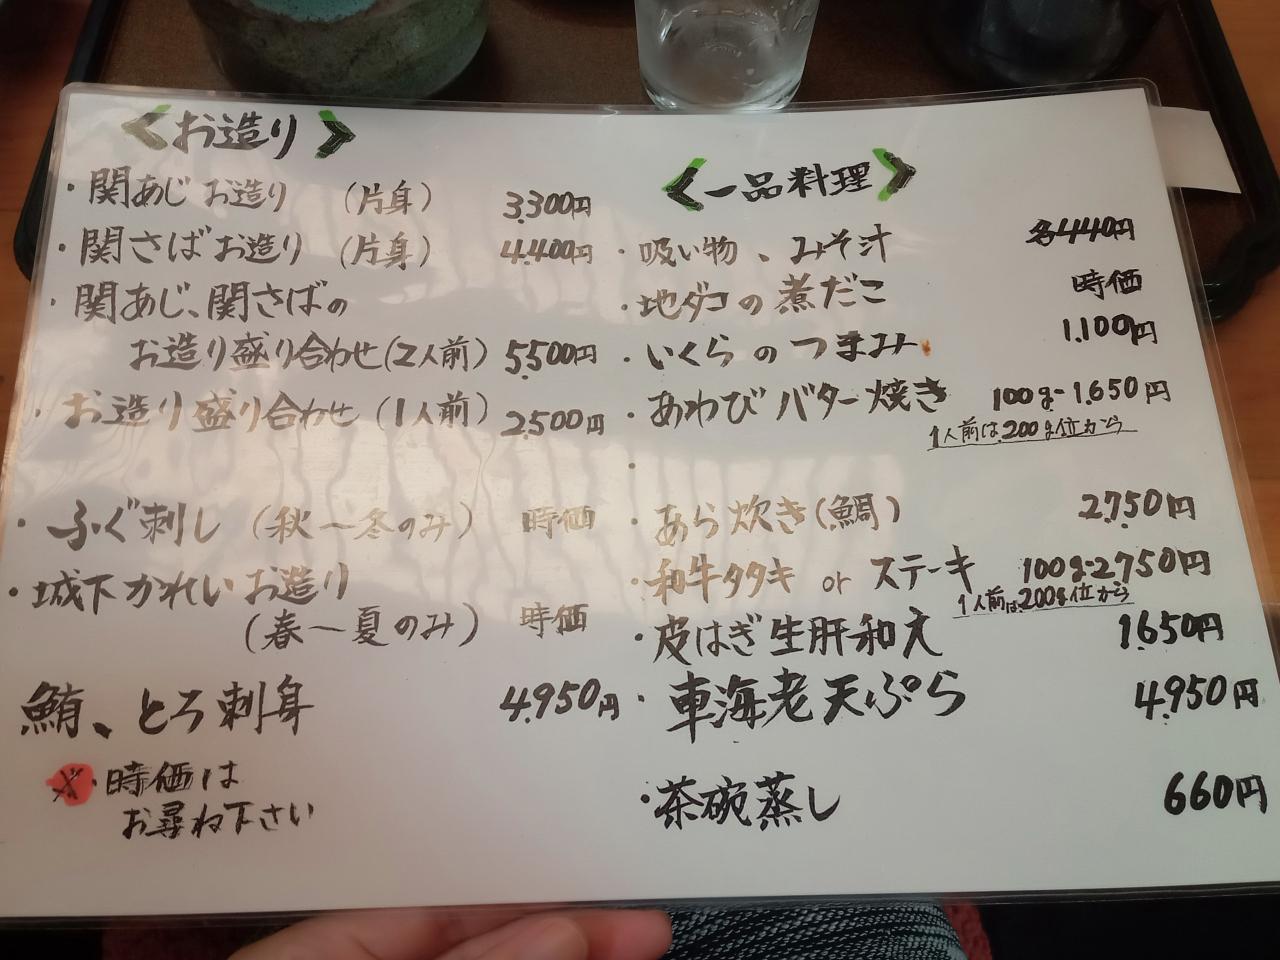 <お造り>
・関あじ お造り (片身) 3.300円
・関さば お造り (片身) 4.400円
・関あじ、関さばの
お造り盛り合わせ(2人前) 5.500円
・お造り盛り合わせ(1人前) 2.500円
・ふぐ刺し (秋〜冬のみ) 時価
・城下かれい お造り
(春〜夏のみ) 時価
鮪、とろ刺身 4.950円
※時価は
お尋ね下さい
<一品料理>
・吸い物、みそ汁 各440円
・地ダコの煮だこ 時価
・いくらのつまみ 1.100円
・あわびバター焼き 100g-1.650円
1人前は、200g位から
・
・あら炊き(鯛) 2.750円
・和牛タタキ or ステーキ 100g-2.750円
1人前は、200g位から
・皮はぎ生肝和え 1.650円
・車海老天ぷら 4.950円
・茶碗蒸し 660円